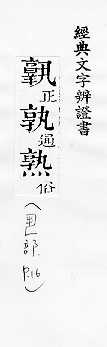 經典文字辨證書
正
孰通
熟俗
(丮部 P.16)